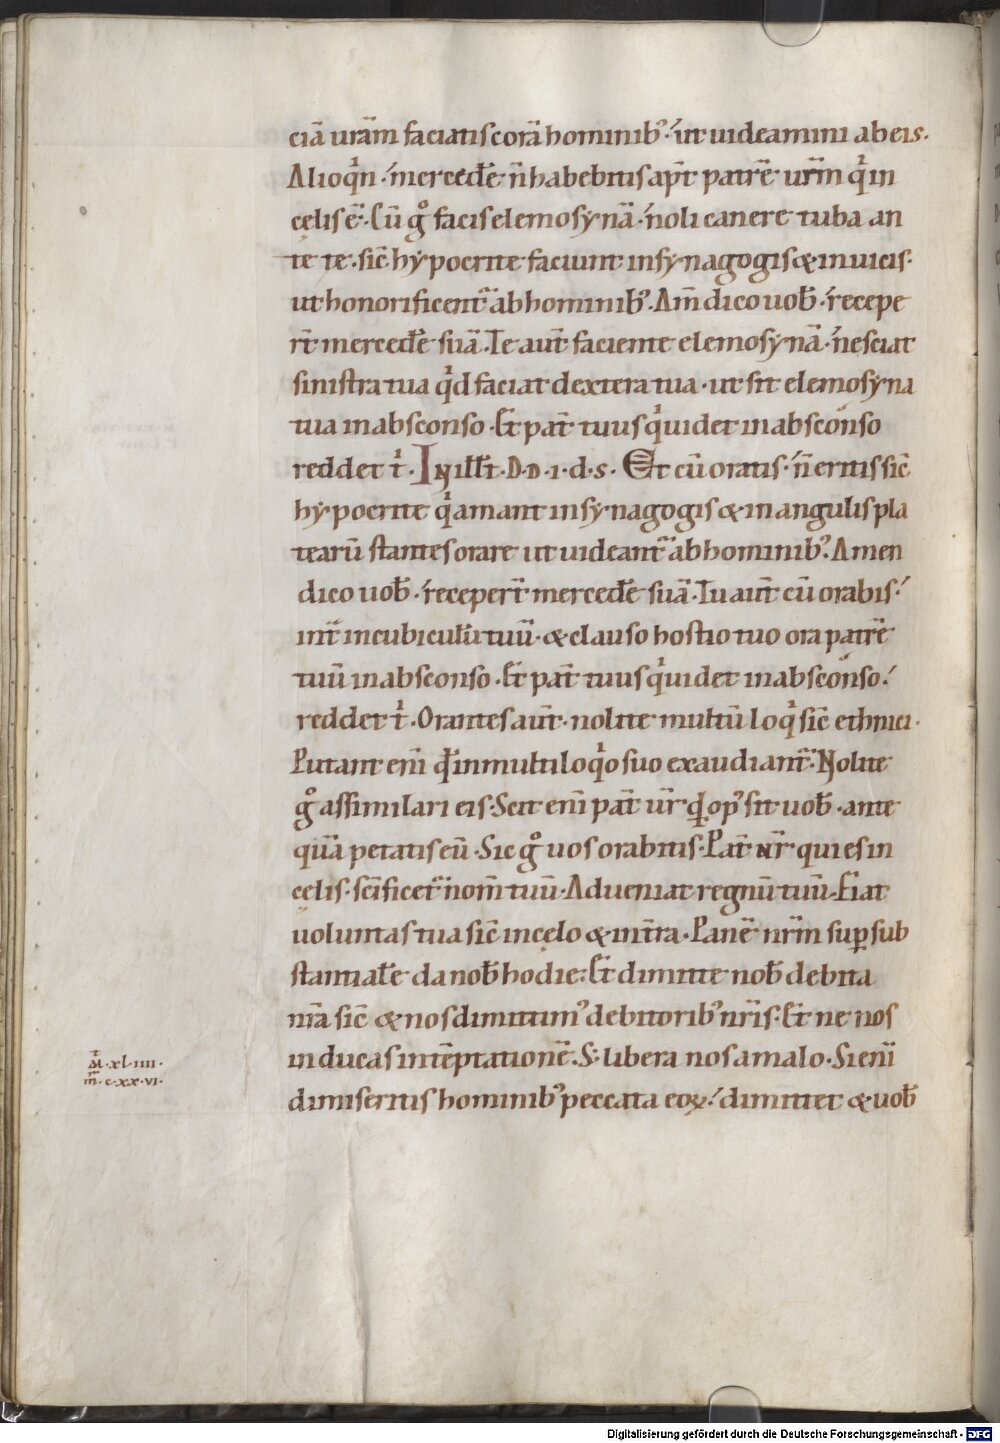 ciā urām faciatis corā hominibꝰ. ut uideamini ab eis.
Alioqͥn. mercedē n̄ habebitis ap̄t patrē urm̄ qͥ in
cęlis ē. Cū gͦ facis elemosynā. noli canere tuba an
te te. sic̄ hypocrite faciunt in synagogis & in uicis.
ut honorificent᷑ ab hominibꝰ. Am̄ dico uob̄. recepe
rt̄ mercedē suā. Te aut̄ faciente elemosynā. nesciat
sinistra tua qͥd faciat dextera tua. ut sit elemosyna
tua in absconso. Et pat̄ tuus qͥ uidet in absconso
reddet tͥ. In ill̄ t̄. D. D. i. d. s. Et cū oratis. n̄ eritis sic̄
hypocrite qͥ amant in synagogis & in angulis pla
tearū stantes orare ut uideant᷑ ab hominibꝰ. Amen
dico uob̄. recepert̄ mercedē suā. Tu aut̄ cū orabis.
int̄ in cubiculū tuū. & clauso hostio tuo ora patrē
tuū in absconso. Et pat̄ tuus qͥ uidet in absconso.
reddet tͥ. Orantes aut̄. nolite multū loqͥ sic̄ ethnici.
Putant eni̅ qd̄ in multiloqͥo suo exaudiant᷑. Nolite
gͦ assimilari eis. Scit eni̅ pat̄ ur̄ qd̄ opꝰ sit uob̄. ante
quā petatis eū. Sic gͦ uos orabitis. Pat̄ nr̄ qui es in
cęlis. sc̄ificet᷑ nom̄ tuū. Adueniat regnū tuū. Fiat
uoluntas tua sic̄ in cęlo & in t̄ra. Panē nrm̄ suꝑ sub
stantialē da nob̄ hodie. Et dimitte nob̄ debita
nrā sic̄ & nos dimittimꝰ debitoribꝰ nrīs. Et ne nos
inducas in tēptationē. S; libera nos a malo. Si eni̅
dimiseritis hominibꝰ peccata eoꝝ. dimittet & uob̄
M̄. xl. iiii.
m̄. c. xx. vi.
Digitalisierung gefördert durch die Deutsche Forschungsgemeinschaft - DFG